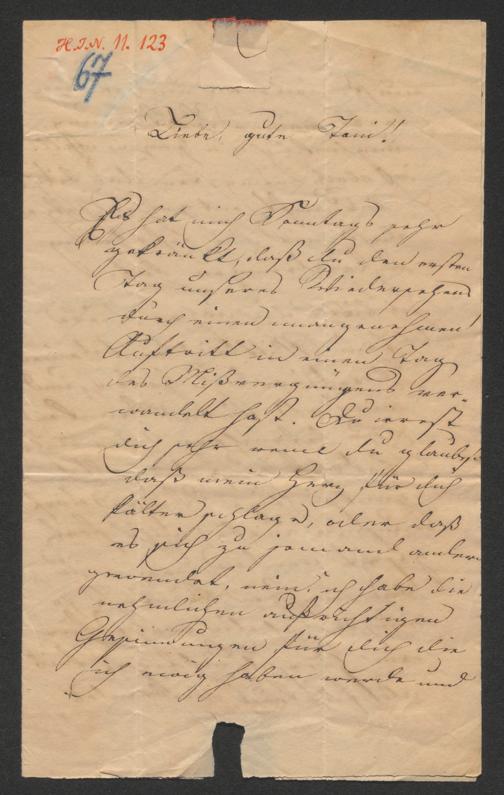 H.I.N. 11.123
67
Liebe, gute Toni!
Es hat mich Sonntags sehr
gekränkt, daß du den ersten
Tag unseres Wiedersehens
durch einen unangenehmen
Auftritt in einen Tag
des Mißvergnügens ver-
wandelt hast. Du irrest
dich sehr wenn du glaubst
daß mein Herz für dich
kälter schlage, oder daß
es sich zu jemand andern
gewendet, nein, ich habe die
nehmlichen aufrichtigen
Gesinnungen für dich die
ich ewig haben werde und